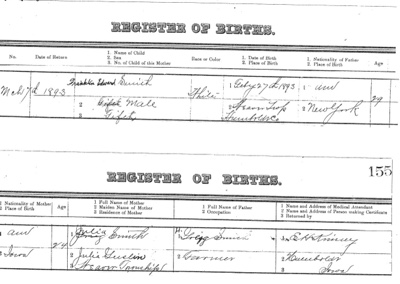 REGISTER OF BIRTHS.
No. Date of Return 1 Name of Child 2 Sex 3 No. of Child of this Mother Race or Color 1 Date of Birth 2 Place of Birth 1 Nationality of Father 2 Place of Birth Age
Mch 7th 1893 Franklin Edward Smith White 1 Feby 27th 1893 1 am 29
2 Male 2 2 New York
3 Fifth Humboldt Co
155
REGISTER OF BIRTHS.
1 Nationality of Mother 2 Place of Birth Age 1 Full Name of Mother 2 Maiden Name of Mother 3 Residence of Mother 1 Full Name of Father 2 Occupation 1 Name and Address of Medical Attendant 2 Name and Address of Person making Certificate 3 Returned by
1 am 24 1 Julia Smith 1 Smith 1
2 Iowa 2 Julia 2 Farmer 2 Humboldt
3 Township 3 Iowa